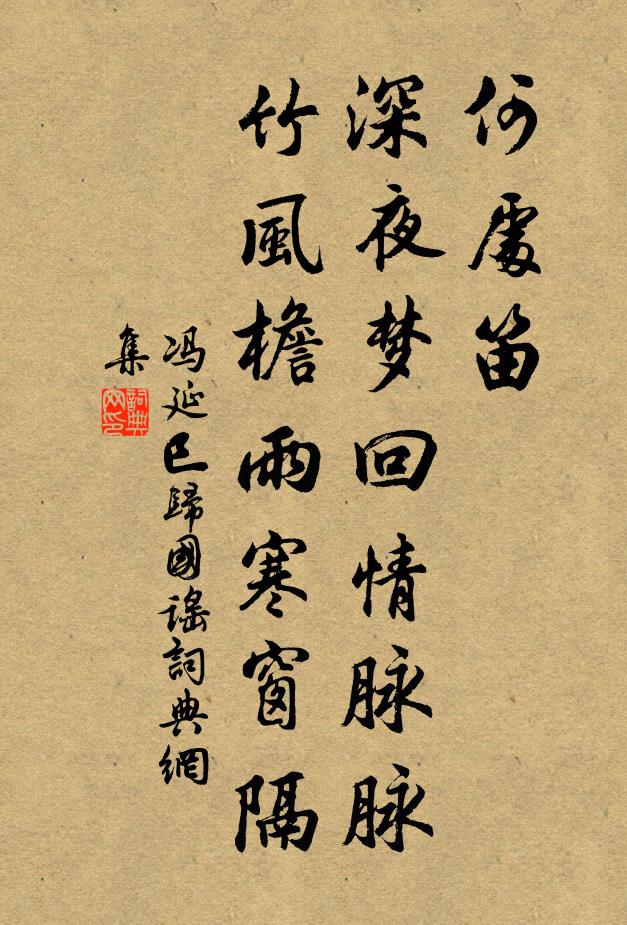 何處笛
深夜梦回情脉脉
竹風檐雨寒窗隔
冯延巳歸國谣詞典網
集
詞典
网印